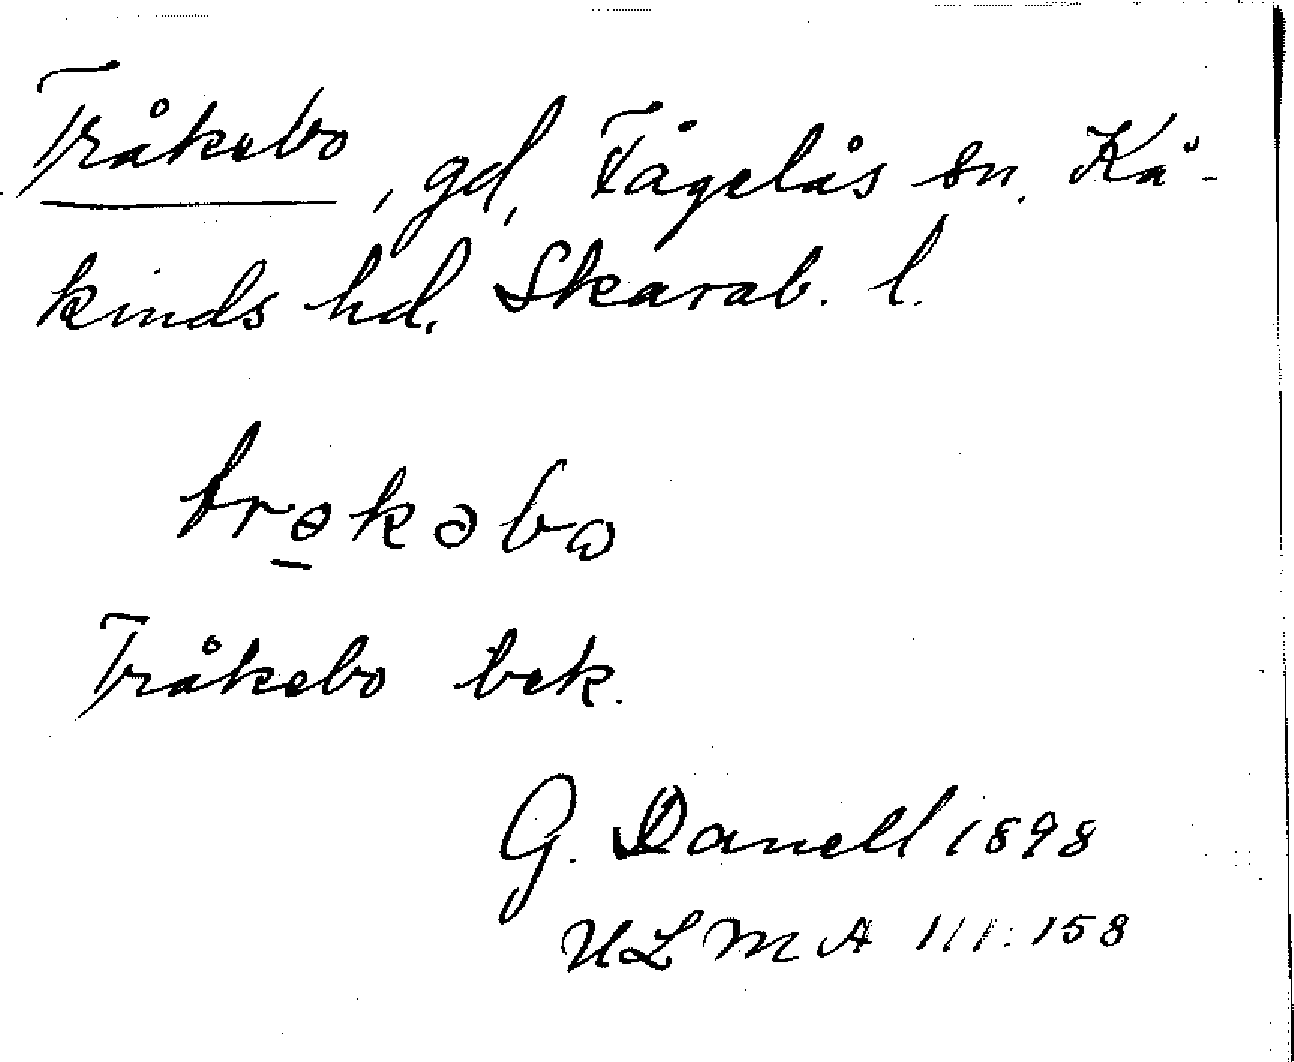 Tråkebo, gd, Fågelås sn. Kå-
kinds hd. Skarab. l.
trəkəbɷ
Tråkebo bek.
G. Danell 1898
ULMA 111:158